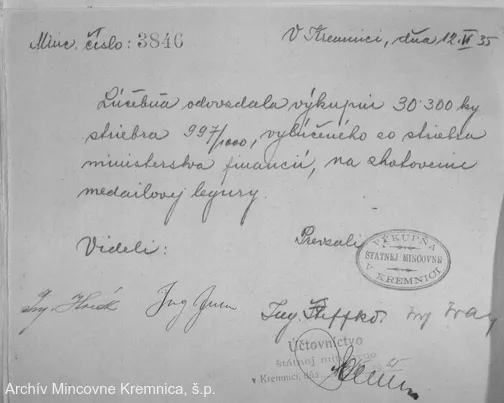 Minc. číslo: 3846
V Kremnici, dňa 12.VI 35
Lúčebňa odovzdala výkupni 30·300 kg
striebra 997/1000, vylúčeného zo striebra
ministerstva financií, na zhotovenie
medailovej legúry.
Videli:
Prevzali:
VÝKUPŇA
ŠTÁTNEJ MINCOVNE
V KREMNICI
Ing.
Ing
Ing. Steffko.
Účtovníctvo
štátnej mincovne
v Kremnici, dňa
Archív Mincovne Kremnica, š.p.